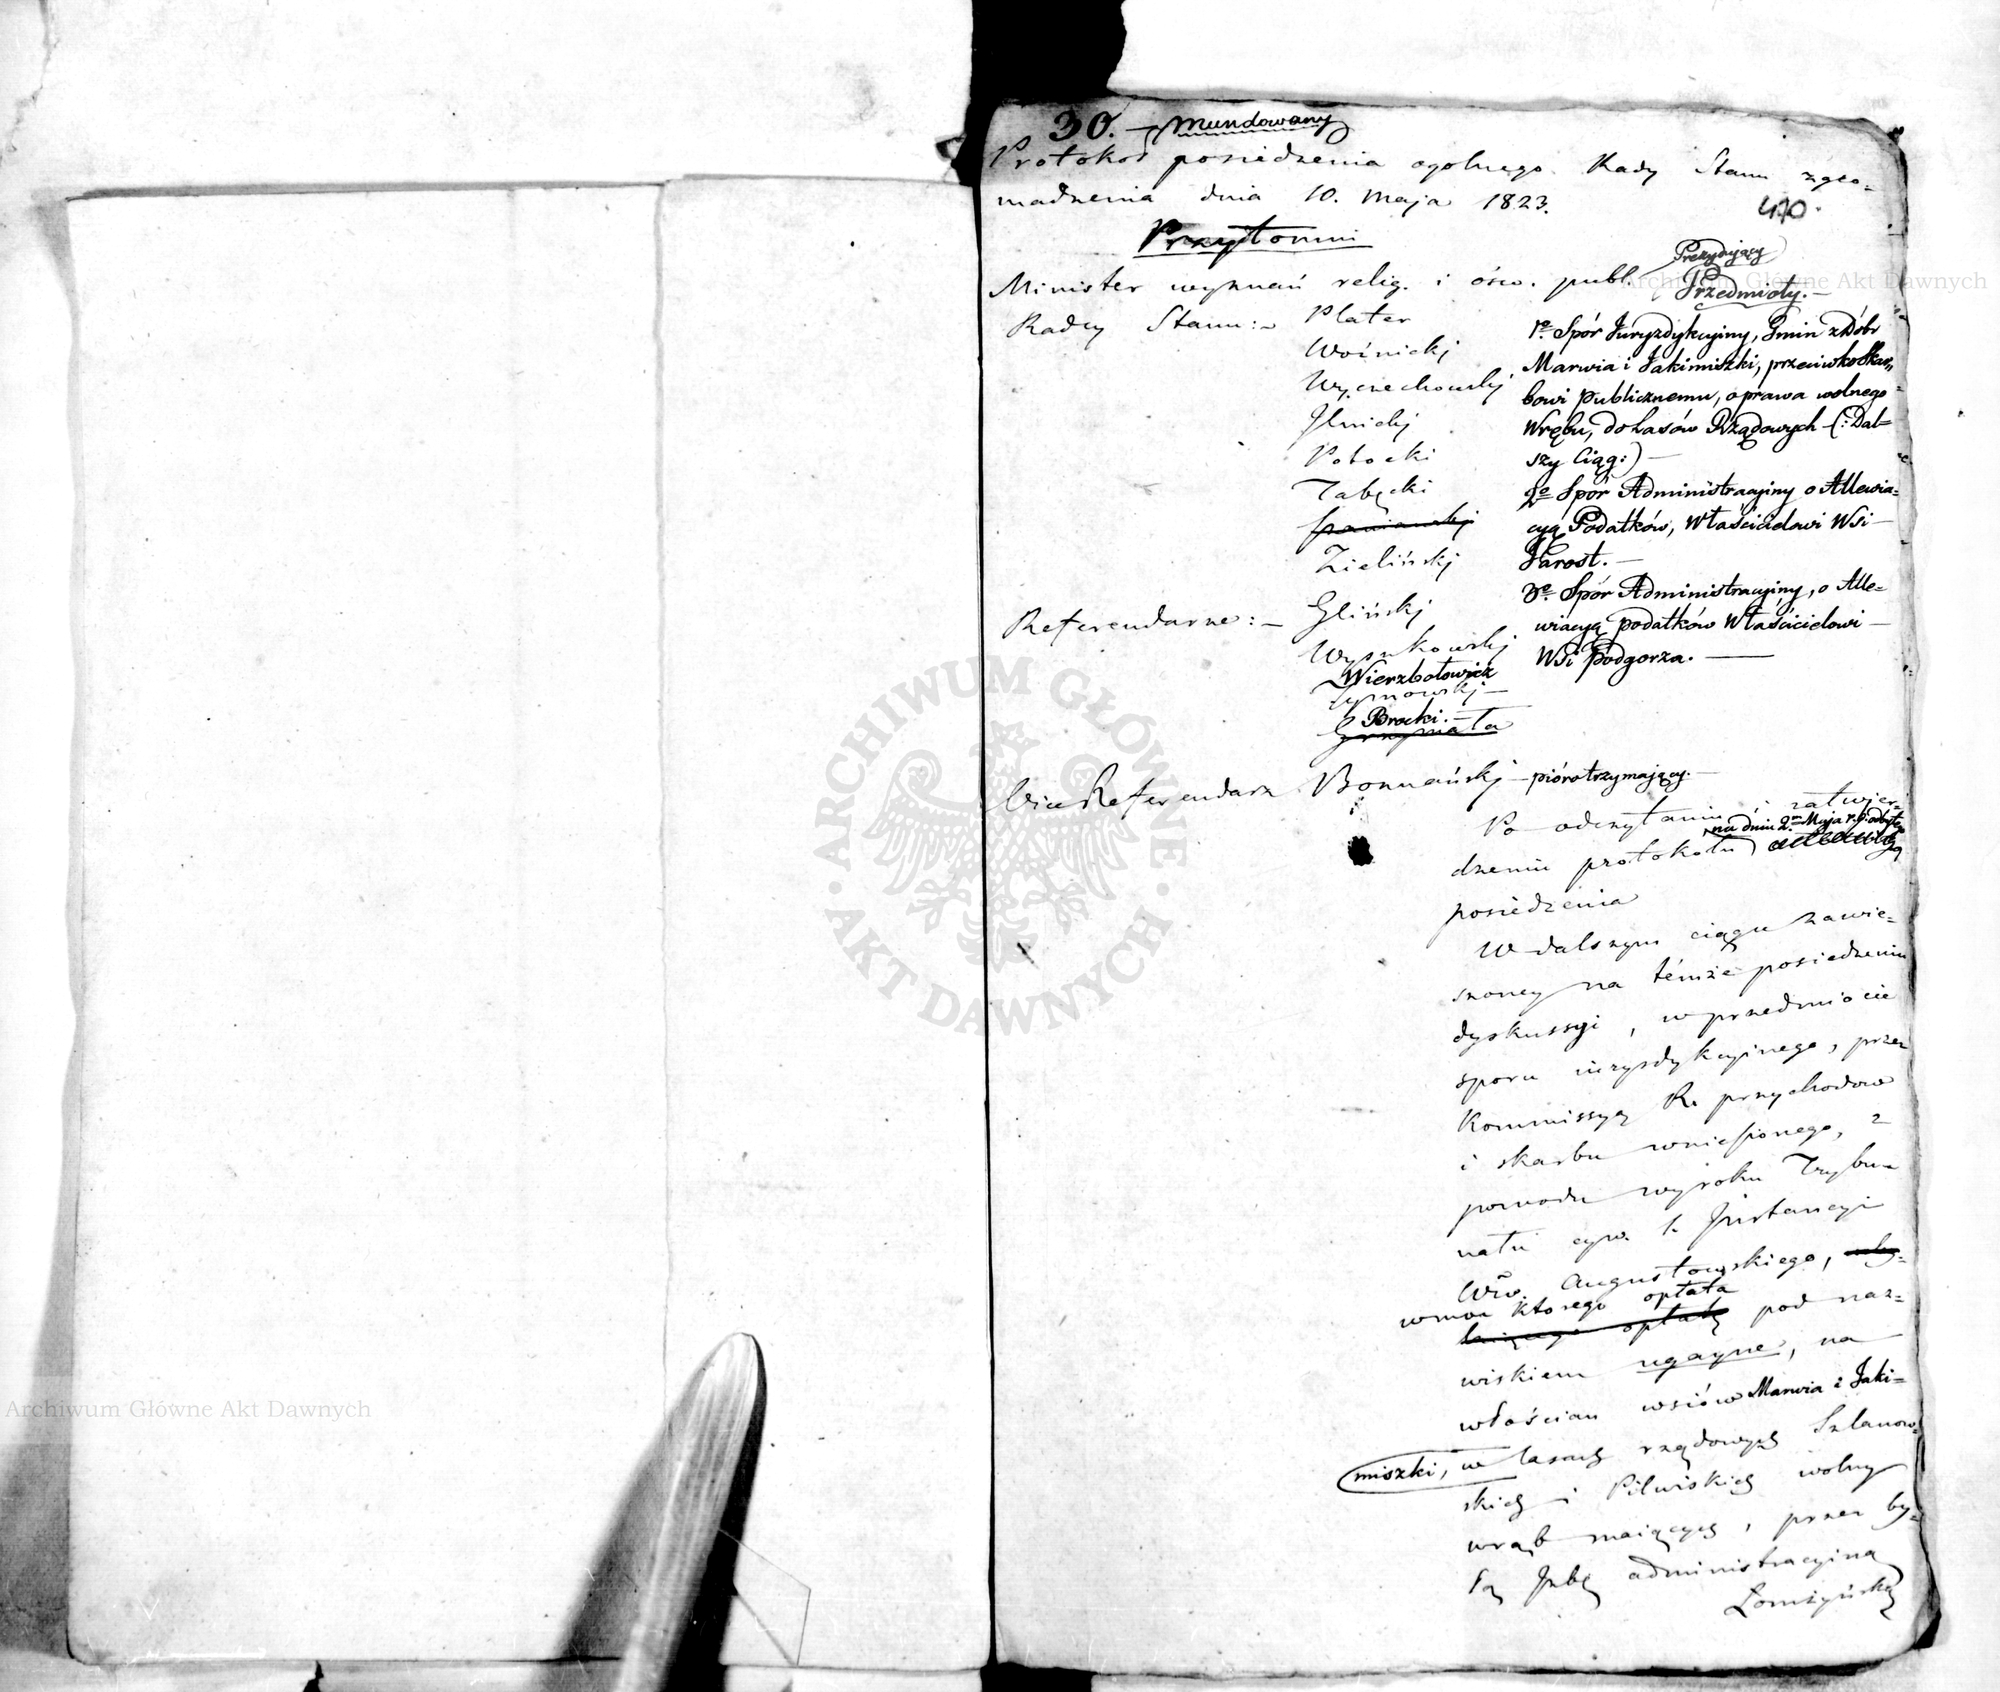 30. — mundowany
Protokoł posiedzenia ogolnego Rady Stanu zgro-
madzenia dnia 10. Maja 1823.
470.
Przytomni
Minister wyznań relig. i ośw. publ. Prezydujący
Radcy Stanu:
Plater
Woźnicki
Wyczechowskj
Potocki
Zielińskj
Referendarze: — Glińskj
Wyszkowskj
Wierzbołowicz
Brocki. —
Grzymała
ViceReferendarz Boznańskj — pióro trzymający. —
Przedmioty. —
1o. Spór Juryzdykcyiny, Gmin z Dóbr
Marwia i Jakimiszki, przeciwko Skar-
bowi publicznemu, o prawa wolnego
Wrębu, do Lasów Rządowych — (: Dal-
szy Ciąg:) —
2o. Spór Administracyiny o Allewia-
cyą Podatków, Właścicielowi Wsi —
Jarost. —
3o. Spór Administracyiny, o Alle-
wiacyą podatków Właścicielowi —
Wsi Podgorza. —
Po odczytaniu i zatwier-
dzeniu protokołu na dniu 2. Maja r. b. odbytego
posiedzenia
W dalszym ciągu zawie-
szoney na témże posiedzeniu
dyskussyi, w przedmiocie
sporu iuryzdykcyinego, przez
Kommissyą R. przychodow
i skarbu wniesionego, z
powodu wyroku Trybu-
nału cyw. 1. Instancyi
Wtw. Augustowskiego,
w moc ktorego opłata
opłatę pod naz-
wiskiem ugayne, na
włościan wsiów Marwia i Jaki-
miszki, w lasach rządowych Szlanow-
skich i Pilwiskich wolny
wrąb maiących, przez by-
łą Jzbę administracyiną
Łomżyńską
Archiwum Główne Akt Dawnych
Archiwum Główne Akt Dawnych
ARCHIWUM GŁÓWNE
· AKT DAWNYCH ·